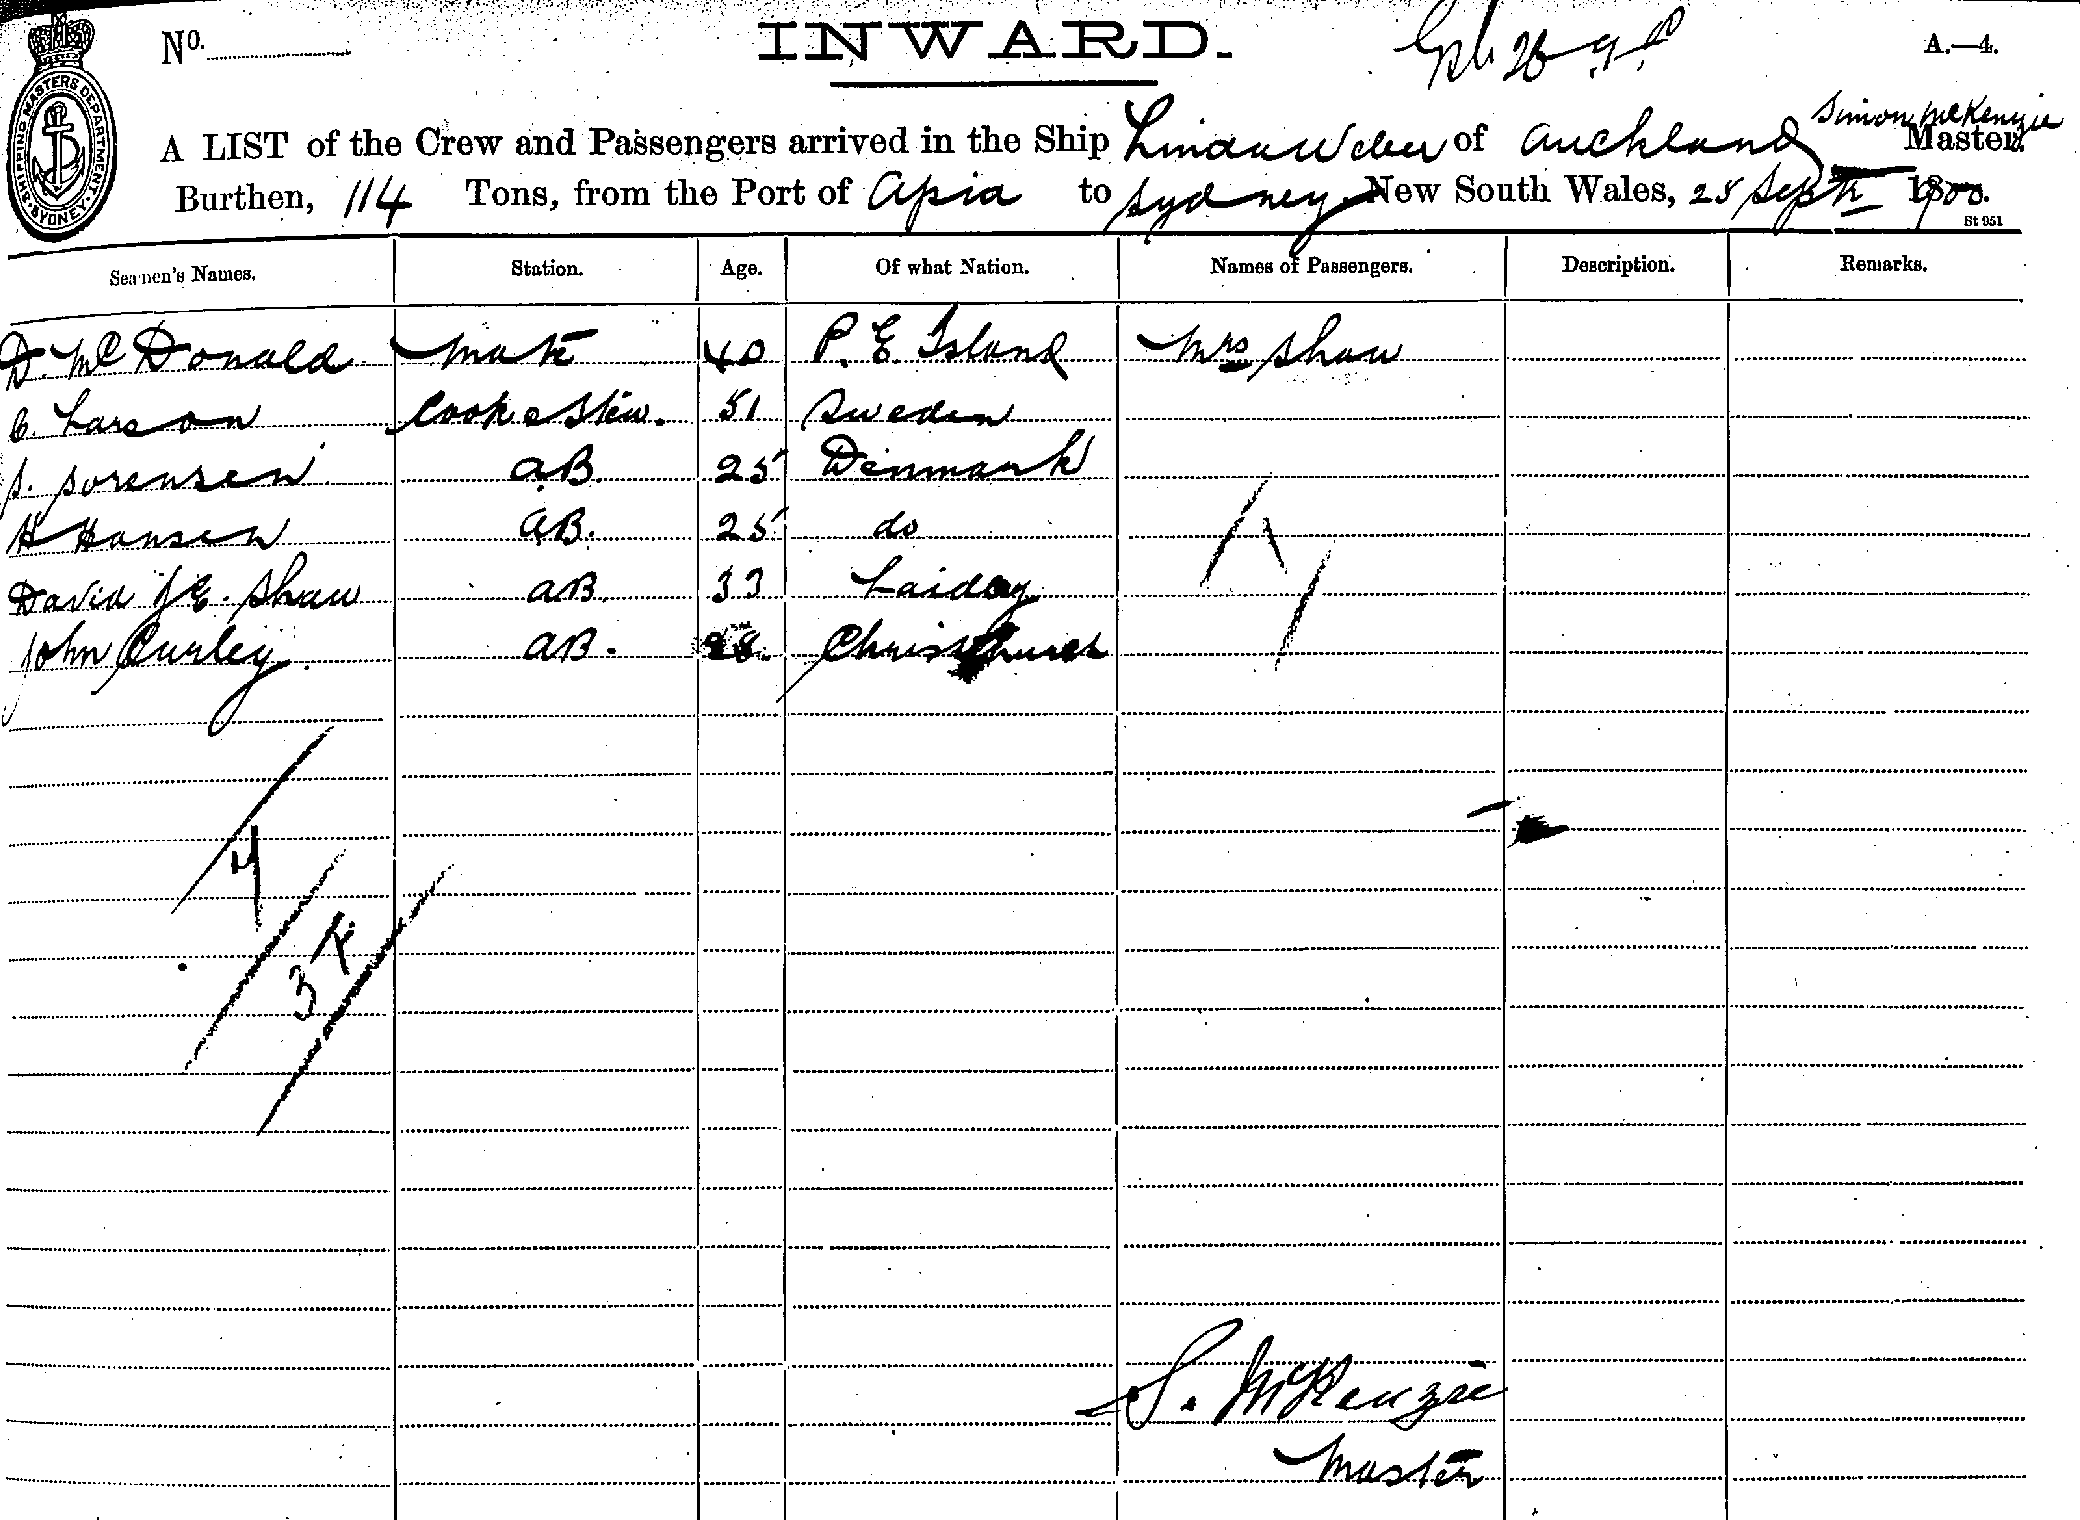 No.
INWARD.
A.—4.
SHIPPING MASTERS DEPARTMENT SYDNEY
Simon McKenzie
A LIST of the Crew and Passengers arrived in the Ship Linda Weber of Auckland Master.
Burthen, 114 Tons, from the Port of Apia to Sydney New South Wales, 25 Sept 1900.
St 951
Seamen's Names. Station. Age. Of what Nation. Names of Passengers. Description. Remarks.
D. McDonald Mate 40 P. E. Island Mrs Shaw
C. Larson Cook & Stew. 51 Sweden
S. Sorensen AB. 25 Denmark
H Hansen AB. 25 do
David J E. Shaw AB. 33
John Curley. AB. 28. Christchurch
S. McKenzie
Master